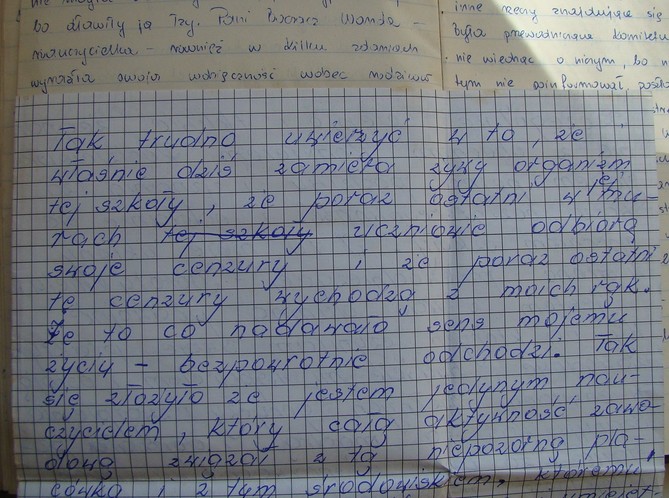 bo dławiły ją łzy. Pani Wanda -
nauczycielka - również w kilku zdaniach
wyraziła swoją wdzięczność wobec rodziców
inne rzeczy znajdujące się
była przewodnicząca komitetu
nie wiedząc o niczym, bo n
tym nie poinformował, posła
Tak trudno uwierzyć w to, że
właśnie dziś zamiera żywy organizm
tej szkoły, że poraz ostatni w jej mu-
rach tej szkoły uczniowie odbiorą
swoje cenzury i że poraz ostatni
te cenzury wychodzą z moich rąk.
Że to co nadawało sens mojemu
życiu - bezpowrotnie odchodzi. Tak
się złożyło że jestem jedynym nau-
czycielem, który całą aktywność zawo-
dową związał z tą niepozorną pla-
cówką i z tym środowiskiem, któremu